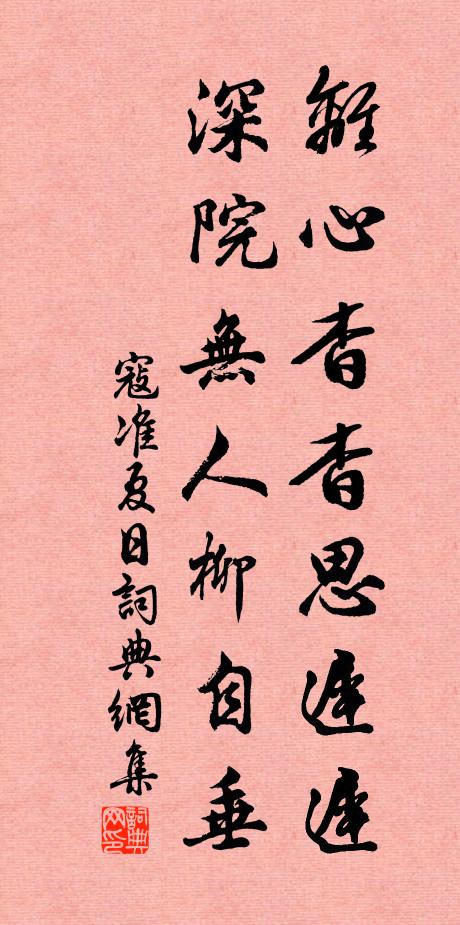 離心杳杳思遲遲
深院無人柳自垂
寇准夏日詞典網集
詞典网印